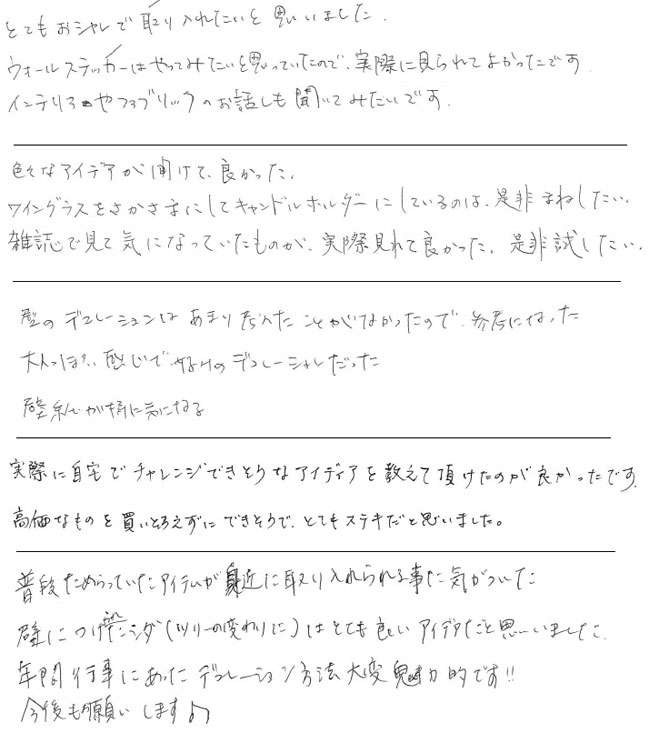 とてもおシャレで取り入れたいと思いました.
ウォールステッカーはやってみたいと思っていたので、実際に見られてよかったです.
インテリアやファブリックのお話しも聞いてみたいです.
色々なアイデアが聞けて、良かった.
ワイングラスをさかさまにしてキャンドルホルダーにしているのは、是非まねしたい.
雑誌で見て気になっていたものが、実際見れて良かった. 是非試したい.
壁のデコレーションはあまり考えたことがなかったので、参考になった
大人っぽい感じで好みのデコレーションだった
壁紙が特に気になる
実際に自宅でチャレンジできそうなアイディアを教えて頂けたのが良かったです.
高価なものを買いそろえずにできそうで、とてもステキだと思いました。
普段ためらっていたアイテムが身近に取り入れられる事に気がついた
壁につけたシダ(ツリーの変わりに)はとても良いアイデアだと思いました.
年間行事にあったデコレーション方法大変魅力的です!!
今後も願いします♪